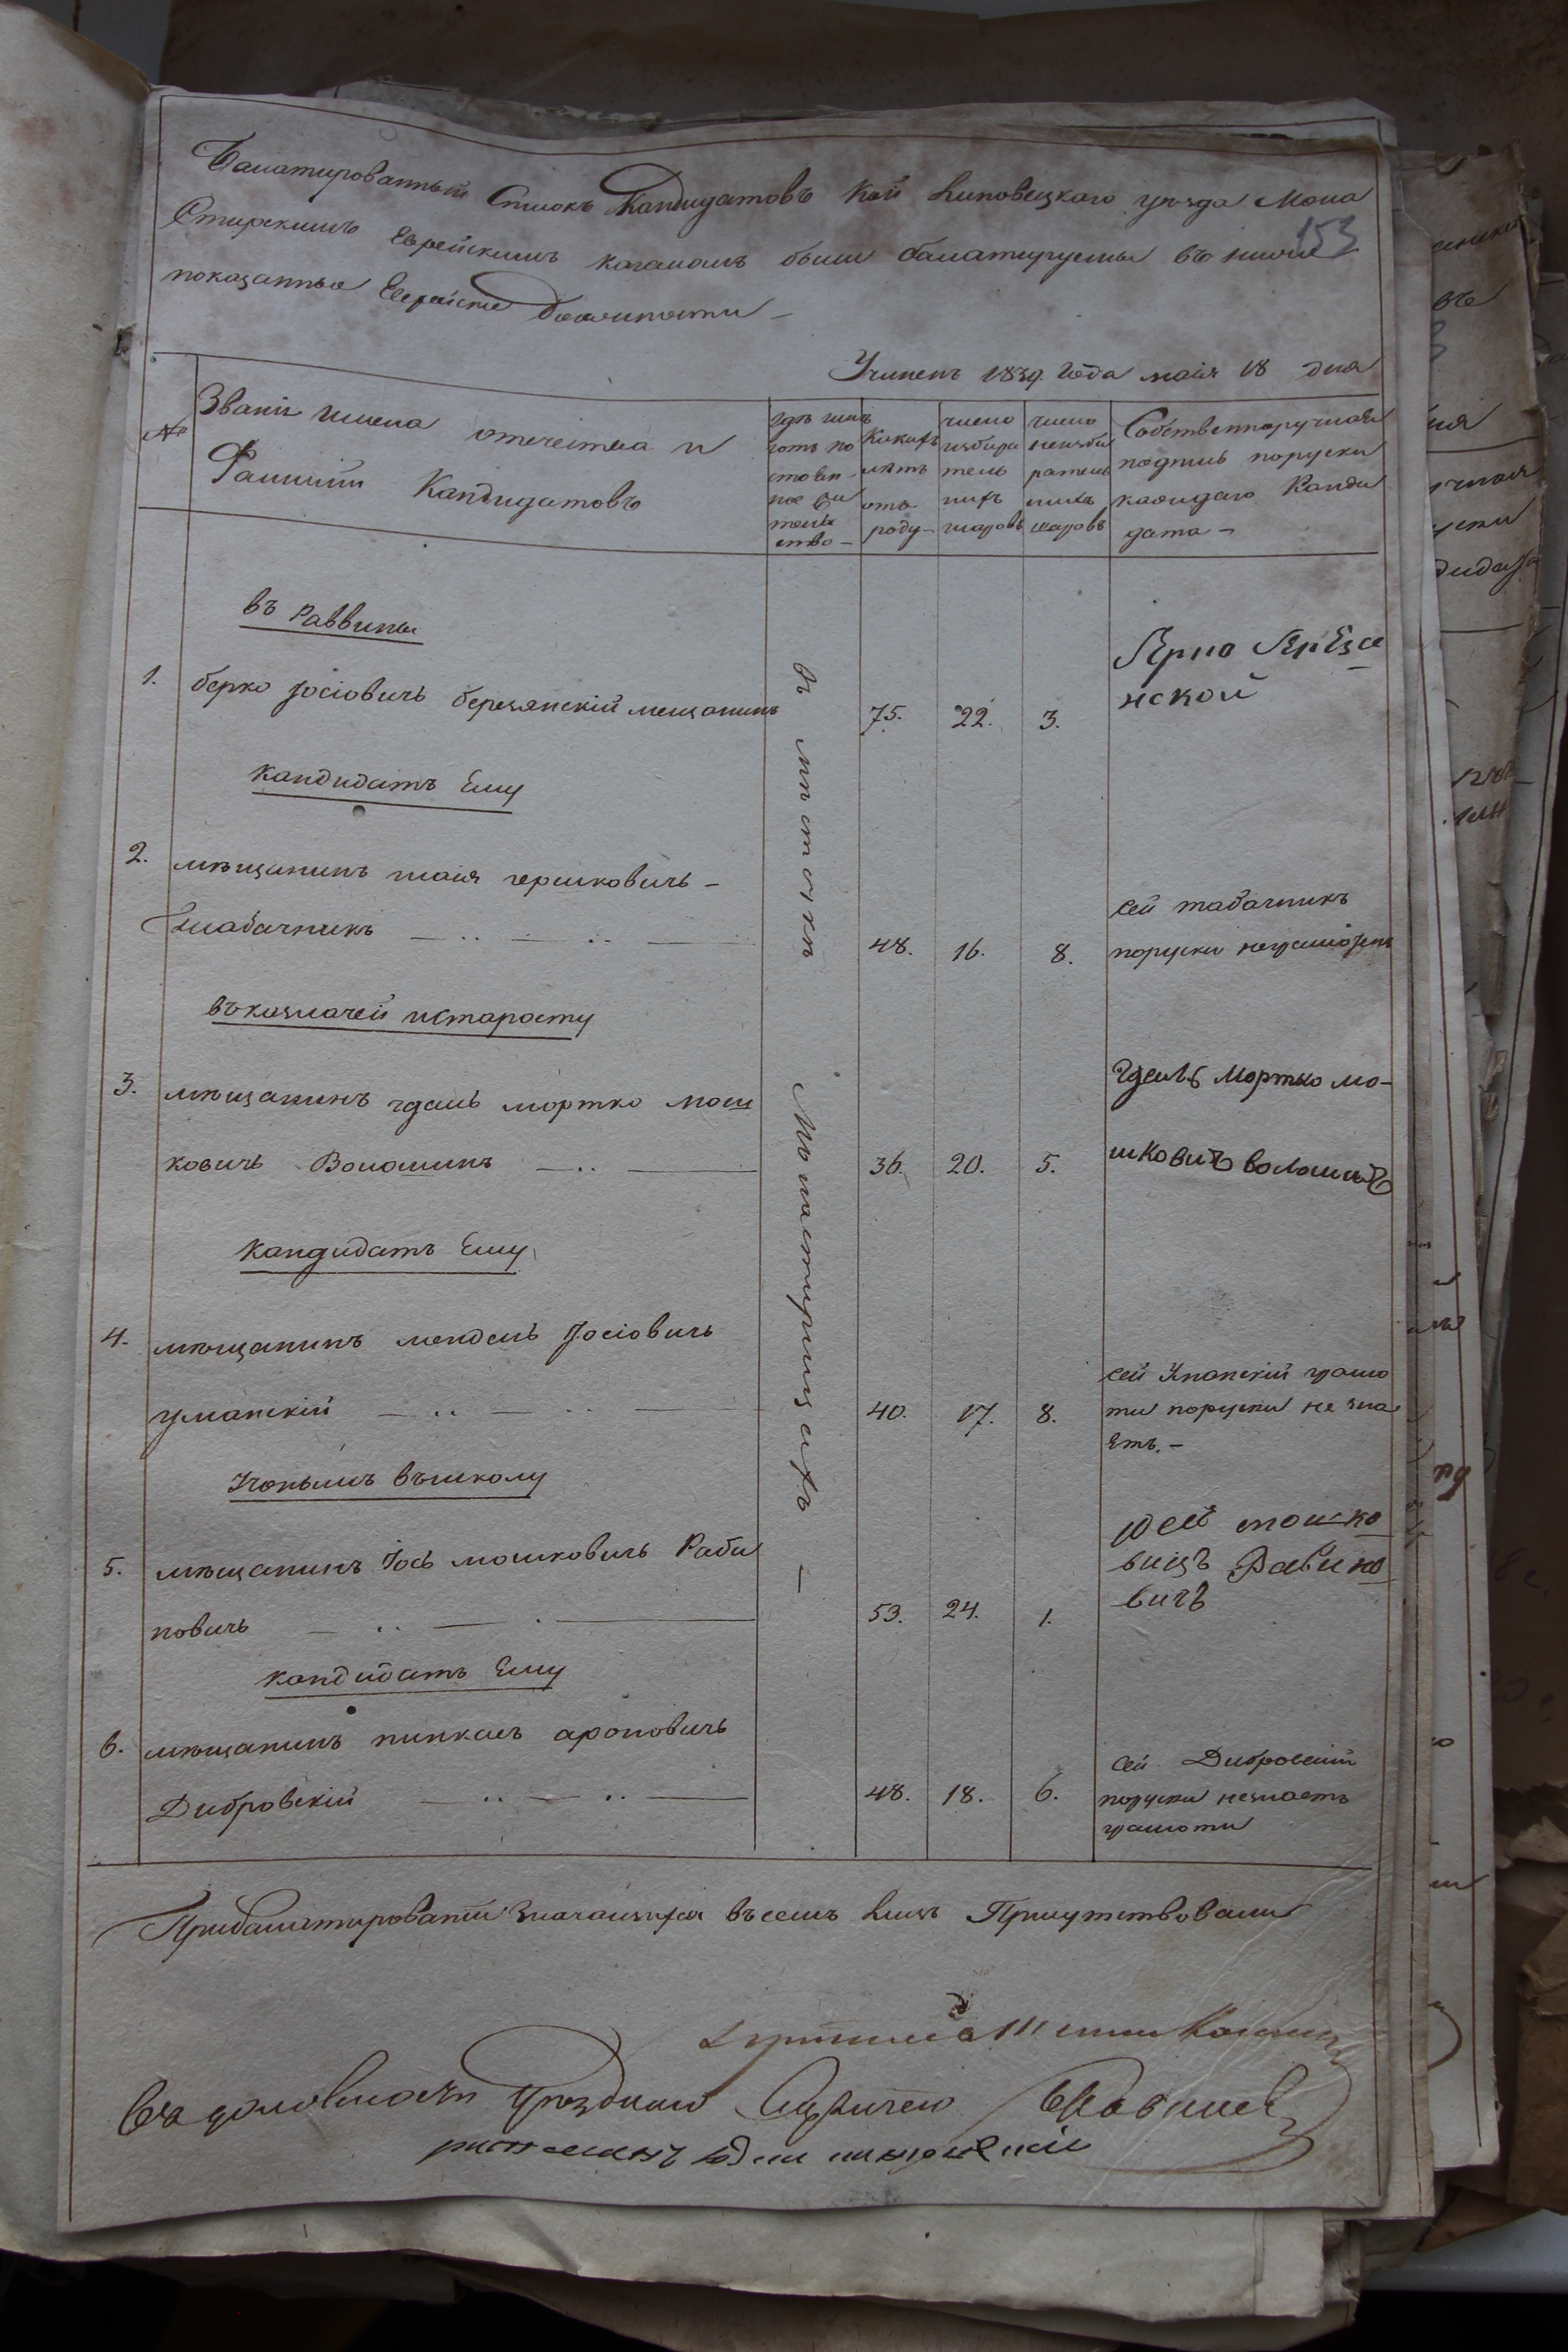 Балатированный Списокъ Кандидатовъ Кои Липовецкаго уезда Мона
153
стирскимъ Еврейскимъ кагаломъ были балатируемы въ ниже
показанные Еврейские должности –
Учиненъ 1839 года маія 18 дня
№
Званіи имена отечества и
Фамиліи Кандидатовъ
где име
етъ по
стоян
ное жи
тель
ство –
Какихъ
летъ
отъ
роду –
число
избира
тель
ныхъ
шаровъ
число
неизби
ратель
ныхъ
шаровъ
Собственноручная
подпись поруски
каждаго Канди
дата –
въ Раввины
1. берко Іосіовичь березянскій мещанинъ
75. 22. 3.
нской
въ местечке Монастырищахъ –
кандидатъ Ему
2. мещанинъ шаия гершковичь –
Табачникъ
48. 16. 8.
сей табачникъ
поруски
въ казначей и старосту
3. мещанинъ гдаль мортко мош
ковичь Волошинъ
36. 20. 5.
гдаль Мортко мо-
шковичъ волошинъ
кандидатъ Ему
4. мещанинъ мендель Іосіовичь
уманскій
40. 17. 8.
сей Уманскій грамо
ти поруски не зна
етъ. –
Ученымъ въ школу
5. мещанинъ Іось мошковичь Раби
новичь
53. 24. 1.
мошко
вицъ Рабино
вичъ
кандидатъ Ему
6. мещанинъ пинкасъ ароновичь
Дибровскій
48. 18. 6.
сей Дибровскій
поруски незнаетъ
грамоти
При балатированіи значащихся въ семъ лицъ Присутствовали